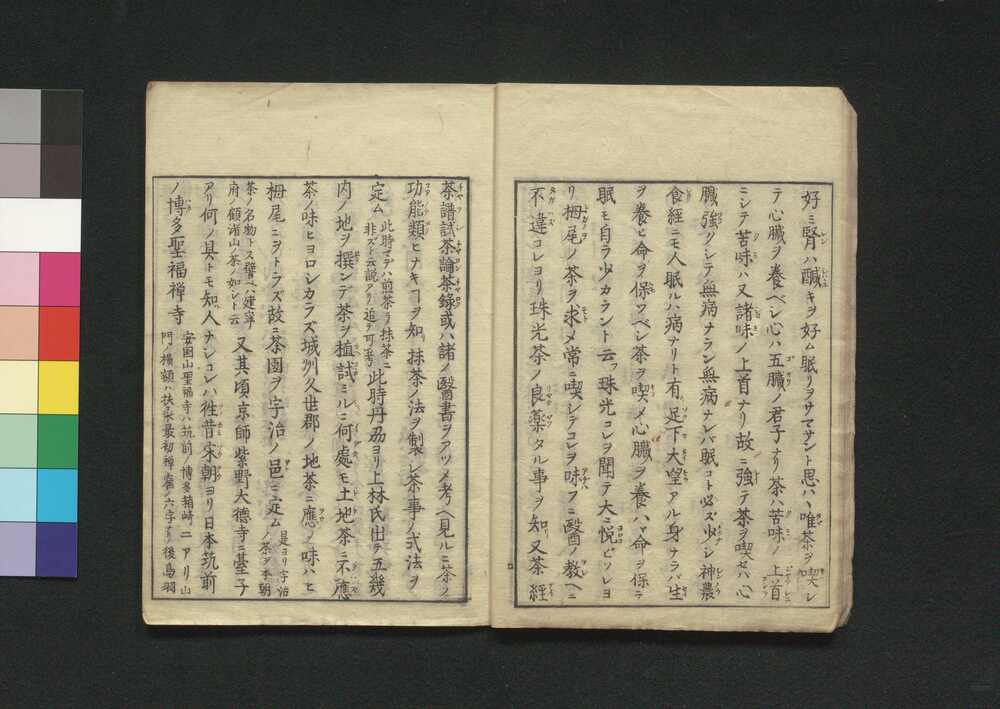 好ミ腎ハ醎キヲ好ム眠リヲサマサント思ハヽ唯茶ヲ喫シ
テ心臓ヲ養ベシ心ハ五臓ノ君子ナリ茶ハ苦味ノ上首
ミシテ苦味ハ又諸味ノ上首ナリ故ニ強テ茶ヲ喫セハ心
臓強クシテ無病ナラン無病ナレバ眠コト必ズ少シ神農
食経ニモ人眠ルハ病ナリト有足下大望アル身ナラバ生
ヲ養ヒ命ヲ保ツベシ茶ヲ喫メ心臓ヲ養ハヾ命ヲ保テ
眠モ自ラ少カラント云フ珠光コレヲ聞テ大ニ悦ビソレヨ
リ栂尾ノ茶ヲ求メ常ニ喫シテコレヲ味フニ醫ノ教ヘニ
不違コレヨリ珠光茶ノ良薬タル事ヲ知リ又茶經
茶譜試茶論茶録或ハ諸ノ醫書ヲアツメ考ヘ見ルニ茶ノ
功能類ヒナキヿヲ知リ抹茶ノ法ヲ製シ茶事ノ式法ヲ
定ム此時マデハ煎茶ヲ抹茶ニ
非ズト云説アリ追テ可考此時丹刕ヨリ上林氏出テ五畿
内ノ地ヲ撰ンデ茶ヲ植試ミルニ何處モ土地茶ニ不應
茶ノ味ヒヨロシカラズ城州久世郡ノ地茶ニ應ノ味ハヒ
栂尾ニヲトラズ故ニ茶園ヲ宇治ノ邑ニ定ム是ヨリ宇治
ノ茶ヲ本朝
茶ノ名物トス譬ヘハ建寧
府ノ顧渚山ノ茶ノ如シト云又其頃京師紫野大徳寺ニ臺子
アリ何ノ具トモ知人ナシコレハ徃昔宋朝ヨリ日本筑前
ノ博多聖福禅寺安國山聖福寺ハ筑前ノ博多箱崎ニアリ山
門ノ横額ハ扶桑最初禅窟ノ六字ナリ後鳥羽